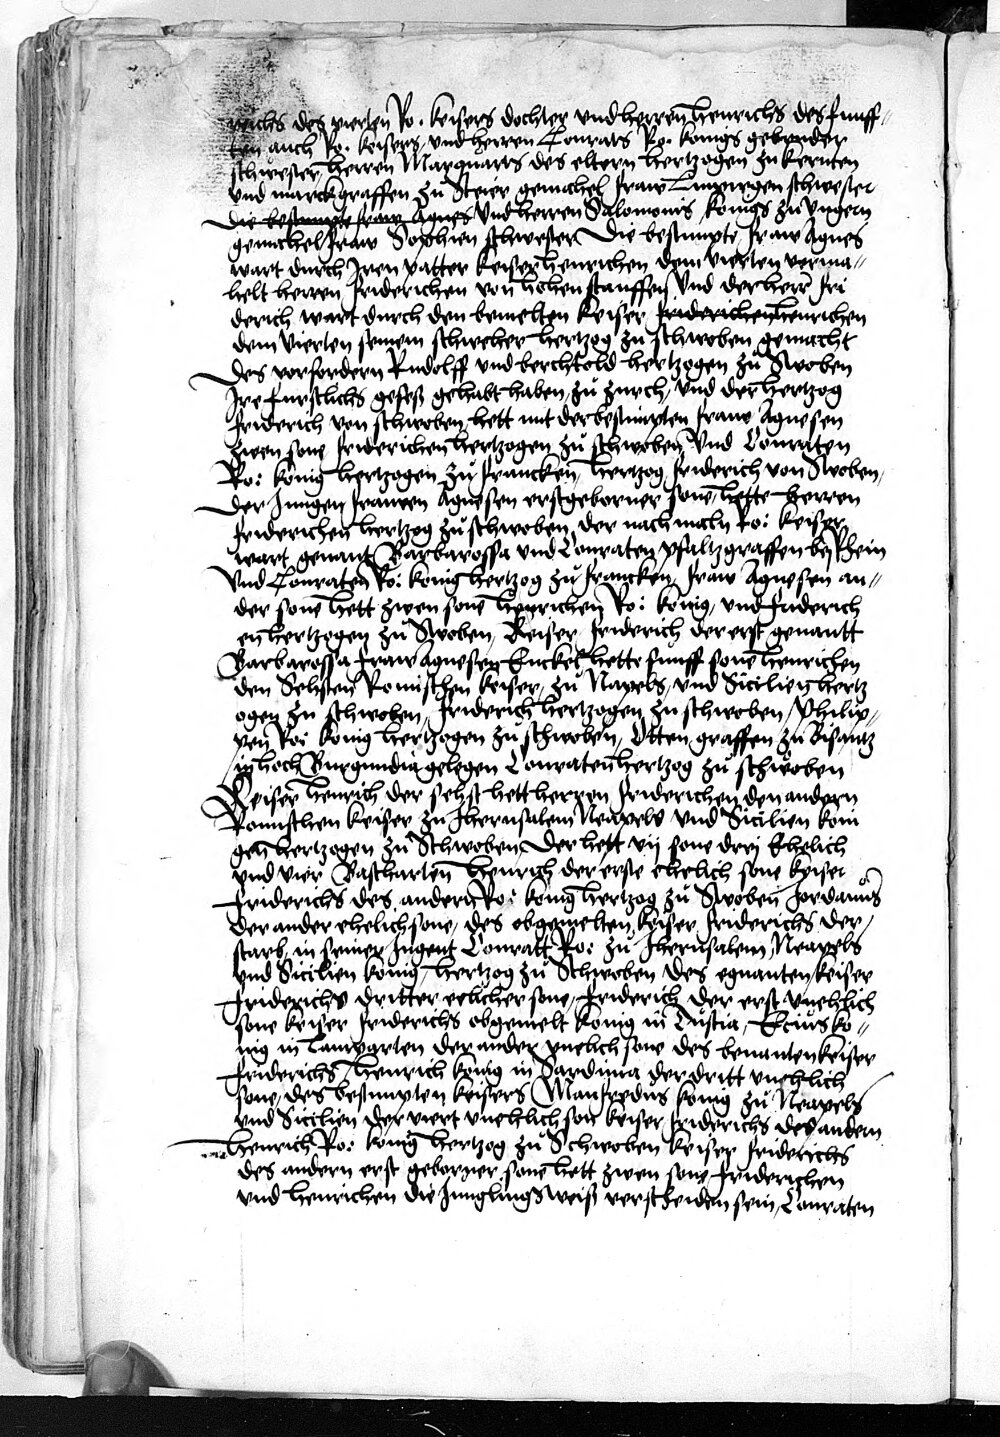 reichs des vierten Ro. keisers dochter und herren henrichs des funff-
ten auch Ro. keisers, und herren Conrats Ro. konigs gebruder
schwester, herren Marquarts des eltern hertzogen zu kernten
und marckgraffen zu Steier gemahel fraw Luypirgen schwester
die bestimpte fraw Agnes Und herren Salomonis konigs zu ungern
gemahel fraw Sophien schwester Die bestimpte fraw Agnes
wart durch Iren vatter keiser henrichen dem vierten verma-
helt herren friderichen von hohen stauffen, Und der herr fri
derich wart durch den bemelten keiser friderichen henrichen
dem vierten seinem schweher hertzog zu schwoben gemacht
Des vorfordern Rudolff und berchtold hertzogen zu Swoben
Ire furstlichs gesess gehabt haben, zu zurch, und der hertzog
friderich von schwoben hett mit der bestimpten fraw Agnesen
zwen sone friderichen hertzogen zu schwoben, Und Conraten
Ro: konig hertzogen zu francken, hertzog friderich von Swoben,
Der Jungen frauwen Agnesen erstgeborner sone, hette herren
friderichen hertzog zu schwoben, der nachmaln Ro: keiser
wart genant Barbarossa und Conraten pfaltzgraffen bey Rhein
Und Conraten Ro: konig hertzog zu francken, fraw Agnesen an-
der sone hett zwen sone henrichen Ro: konig, und friderich
en hertzogen zu Swoben, Keiser friderich der erst genantt
Barbarossa fraw Agnesen Enckel hette funff sone henrichen
den Sehsten Romischen keiser, zu Napels, und Sicilien hertz
ogen zu schwoben, friderich hertzogen zu schwoben, Philip-
pen Ro: konig hertzogen zu schwoben, Otten graffen zu Bisantz
in hoch Burgundia gelegen Conraten hertzog zu schwoben
Keiser henrich der sehst hett herren friderichen den andern
Romischen keiser zu Jherusalem Neapels und Sicilien koni
gen hertzogen zu Schwoben, Der hett vij sone drei Ehelich
und vier Bascharten henrich der erste ehelich sone keiser
friderichs des andern Ro: konig hertzog zu Swoben Jordanus
der ander ehelich sone, des obgemelten keiser friderichs der,
starb, in seiner Jugent Conratt Ro: zu Jherusalem, Neapels
und Sicilien konig, hertzog zu Schwoben des egnanten keiser
friderichs dritter eelicher sone, friderich der erst unehlich
sone keiser friderichs obgemelt konig in Tustia, Ecius ko-
nig in der ander unelich sone des benanten keiser
friderichs, henrich konig in Sardinia der dritt unehlich
sone, des bestimpten keisers Manfredus konig zu Neapels
und Sicilien der viert unehlich son keiser friderichs des andern
henrich Ro: konig hertzog zu Schwoben keiser friderichs
des andern erst geborner sone hett zwen sone friderichen
und henrichen die Junglings weiss verscheiden sein, Conraten